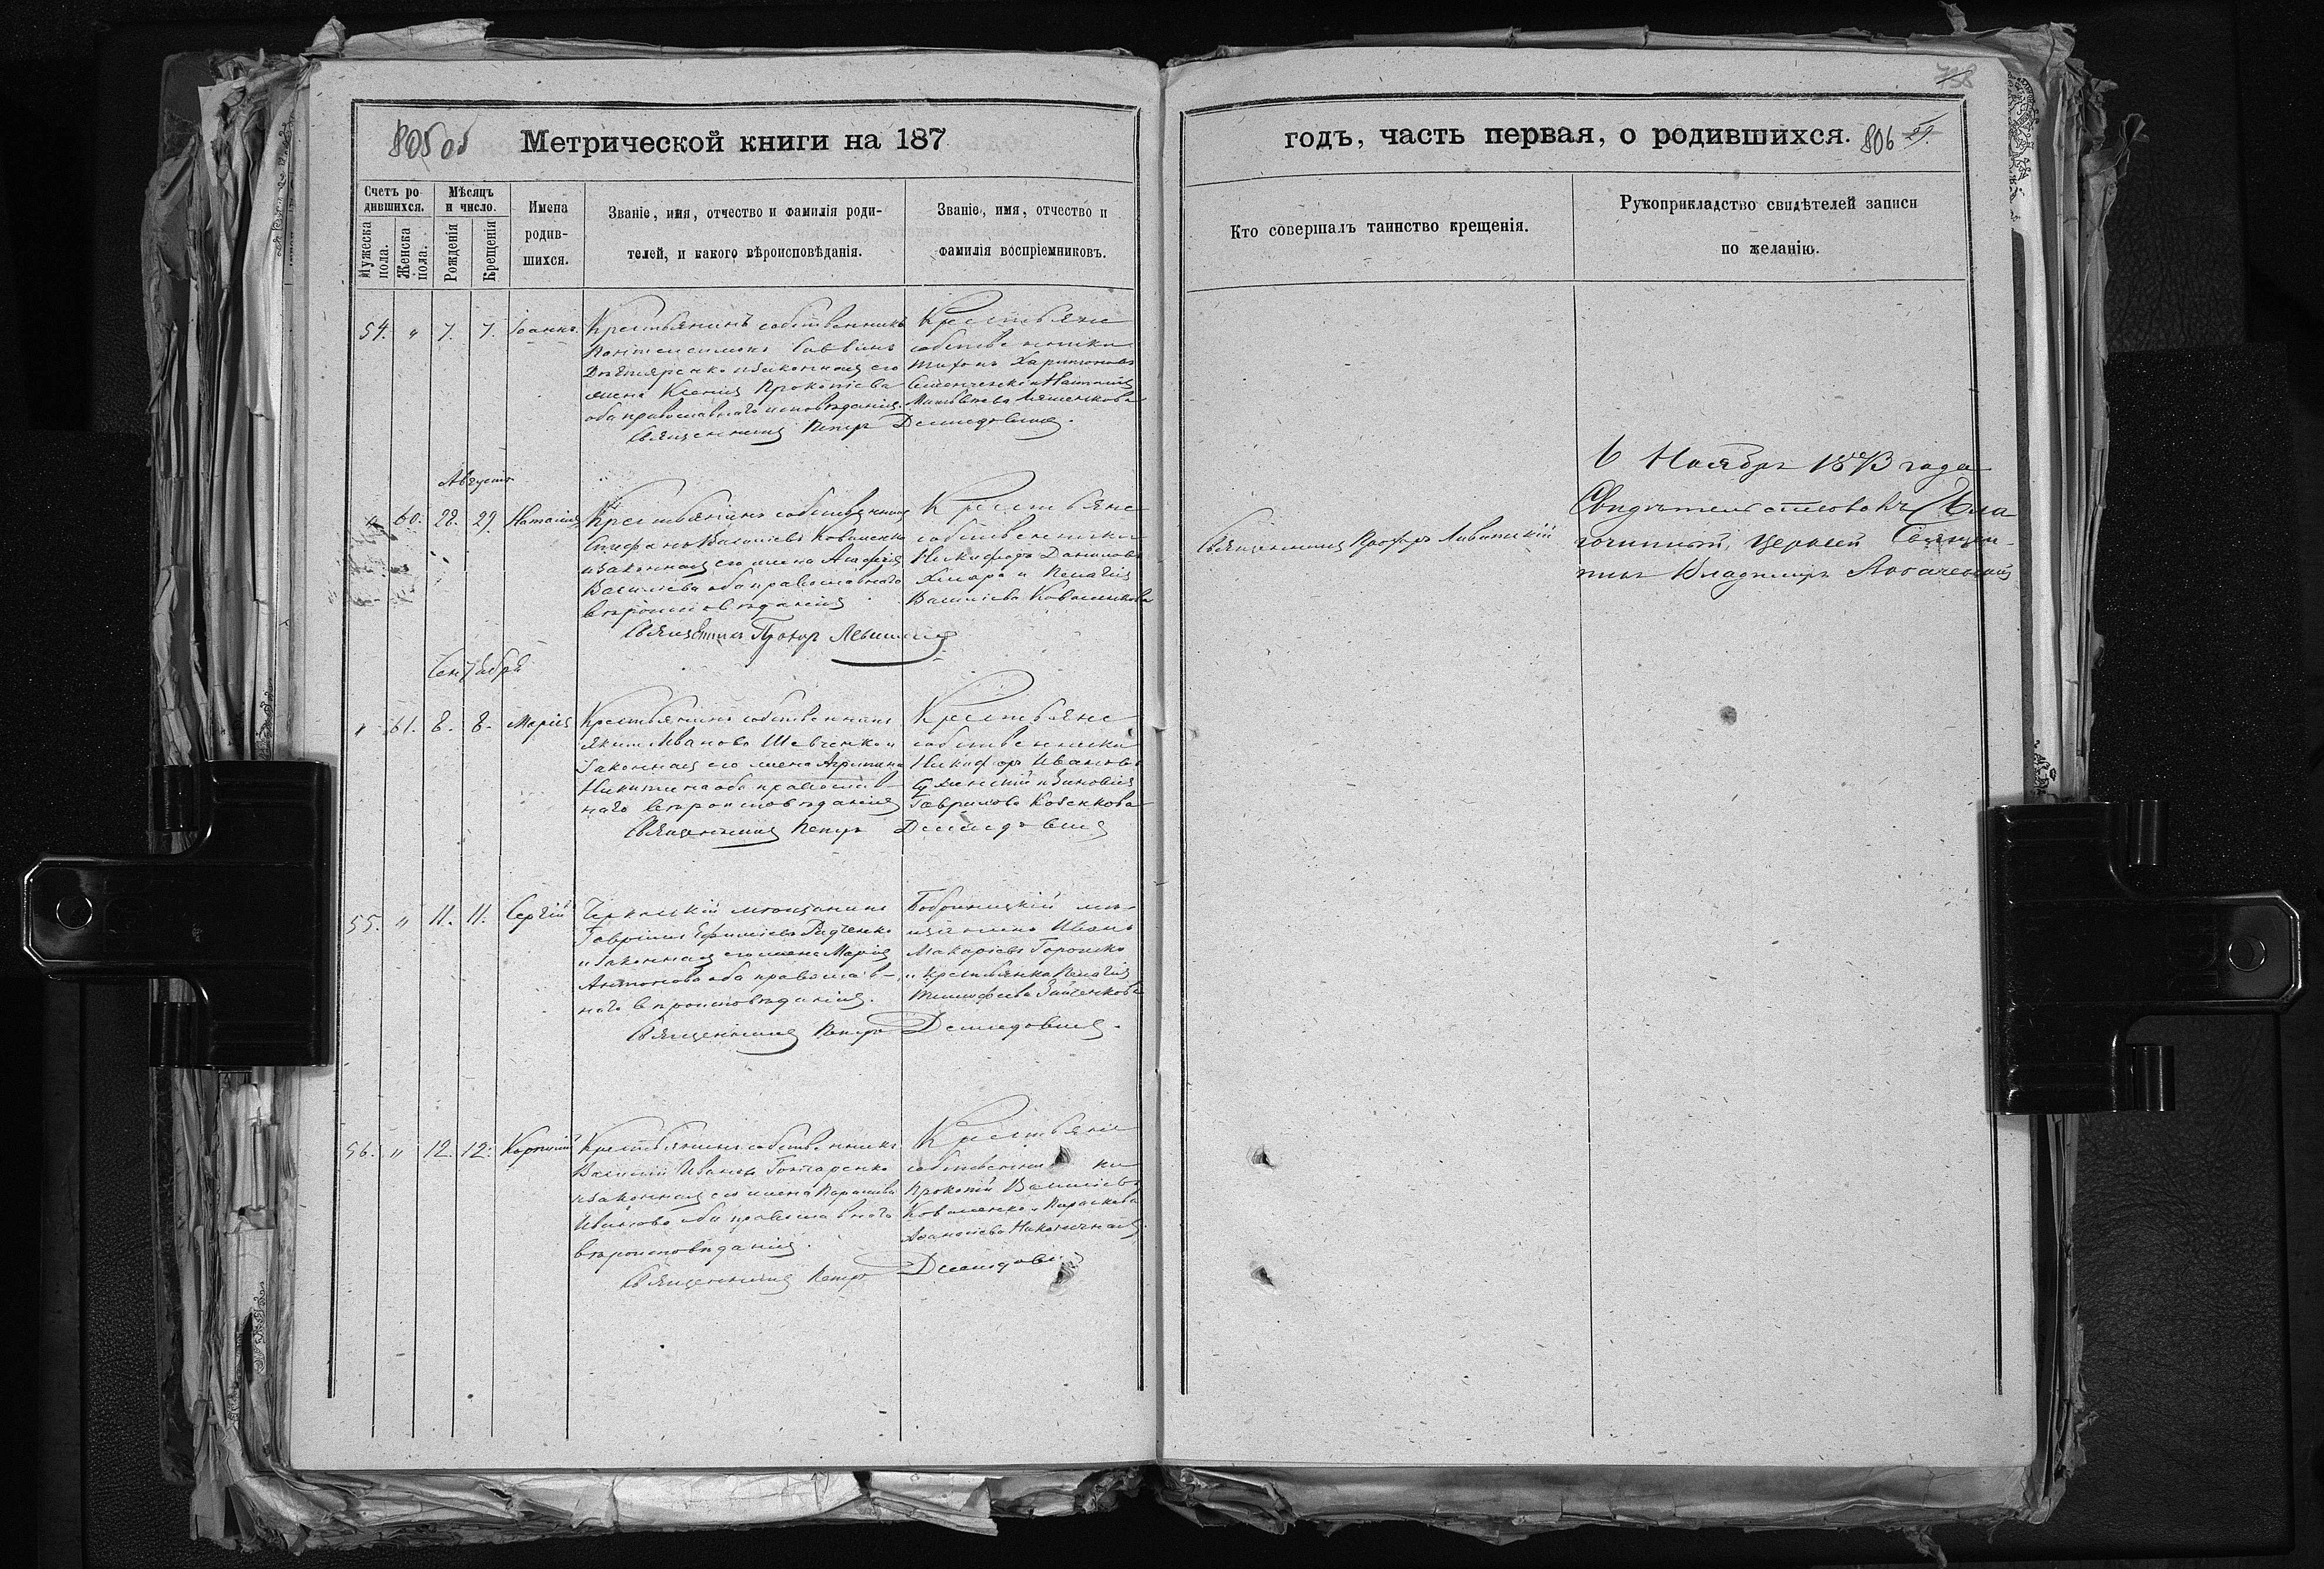 805 об
Метрической книги на 187
Счетъ ро-
дившихся.
Мужеска
пола.
Женска
пола.
Мѣсяцъ
и число.
Рожденія
Крещенія
Имена
родив-
шихся.
Званіе, имя, отчество и фамилія роди-
телей, и какого вѣроисповѣданія.
Званіе, имя, отчество и
фамилія воспріемниковъ.
54. " 7. 7. Іоаннъ.
Крестьянинъ собственникъ
Пантелеимонъ Саввинъ
и законная его
жена Ксенія Прокопіева
оба православнаго исповѣданія.
Крестьяне
собственники
Тихонъ Харитоновъ
и Наталія
Матвѣева
Священникъ Петръ Демидовичъ.
Августъ
" 60. 28. 29. Наталія
Крестьянинъ собственникъ
Стефанъ Василіевъ Коваленко
и законная его жена Агафія
Василіева оба православнаго
вѣроисповѣданія
Крестьяне
собственники
Никифоръ Даниловъ
Хмара и Пелагія
Василіева Коваленкова
Священникъ Прохоръ Левитскій
Сентябрь
" 61. 8. 8. Марія
Крестьянинъ собственникъ
Якимъ Ивановъ Шевченко и
законная его жена Агрипина
Никитина оба православ-
наго вѣроисповѣданія
Крестьяне
собственники
Никифоръ Ивановъ
и Зиновія
Гаврилова Козенкова
Священникъ Петръ Демидовичъ
55. " 11. 11. Сергій
Черкаскій мѣщанинъ
Гавріилъ Ефиміевъ Радченко
и законная его жена Марія
Антонова оба православ-
наго вѣроисповѣданія.
Бобринецкій мѣ-
щанинъ Иванъ
Макаріевъ Горошко
и крестьянка Пелагія
Тимофеева Зайченкова
Священникъ Петръ Демидовичъ.
56. " 12. 12. Корнилій
Крестьянинъ собственникъ
Василій Ивановъ Гончаренко
и законная его жена Параскева
Иванова оба православнаго
вѣроисповѣданія.
Крестьяне
собственники
Прокопій Василіевъ
Коваленко и Параскева
Афанасіева
Священникъ Петръ Демидовичъ
738
годъ, часть первая, о родившихся.
806
Кто совершалъ таинство крещенія.
Рукоприкладство свидѣтелей записи
по желанію.
Священникъ Прохоръ Левитскій
6 Ноября 1873 года
Свидѣтельствовалъ Бла-
гочинный, Церквей Священ-
никъ Владиміръ